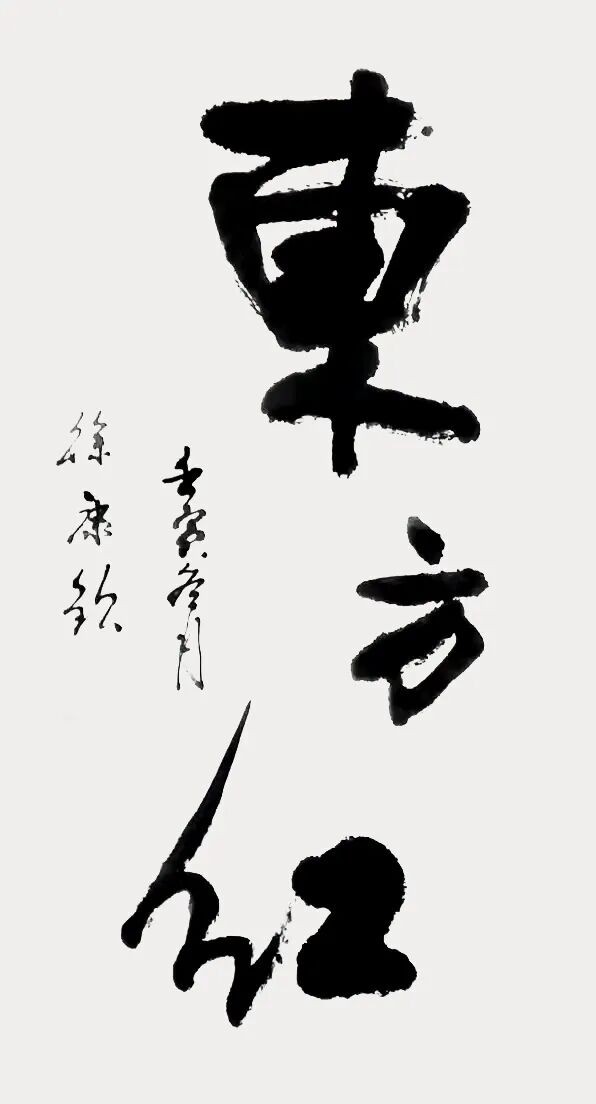 東方红
壬寅冬月
徐康钦